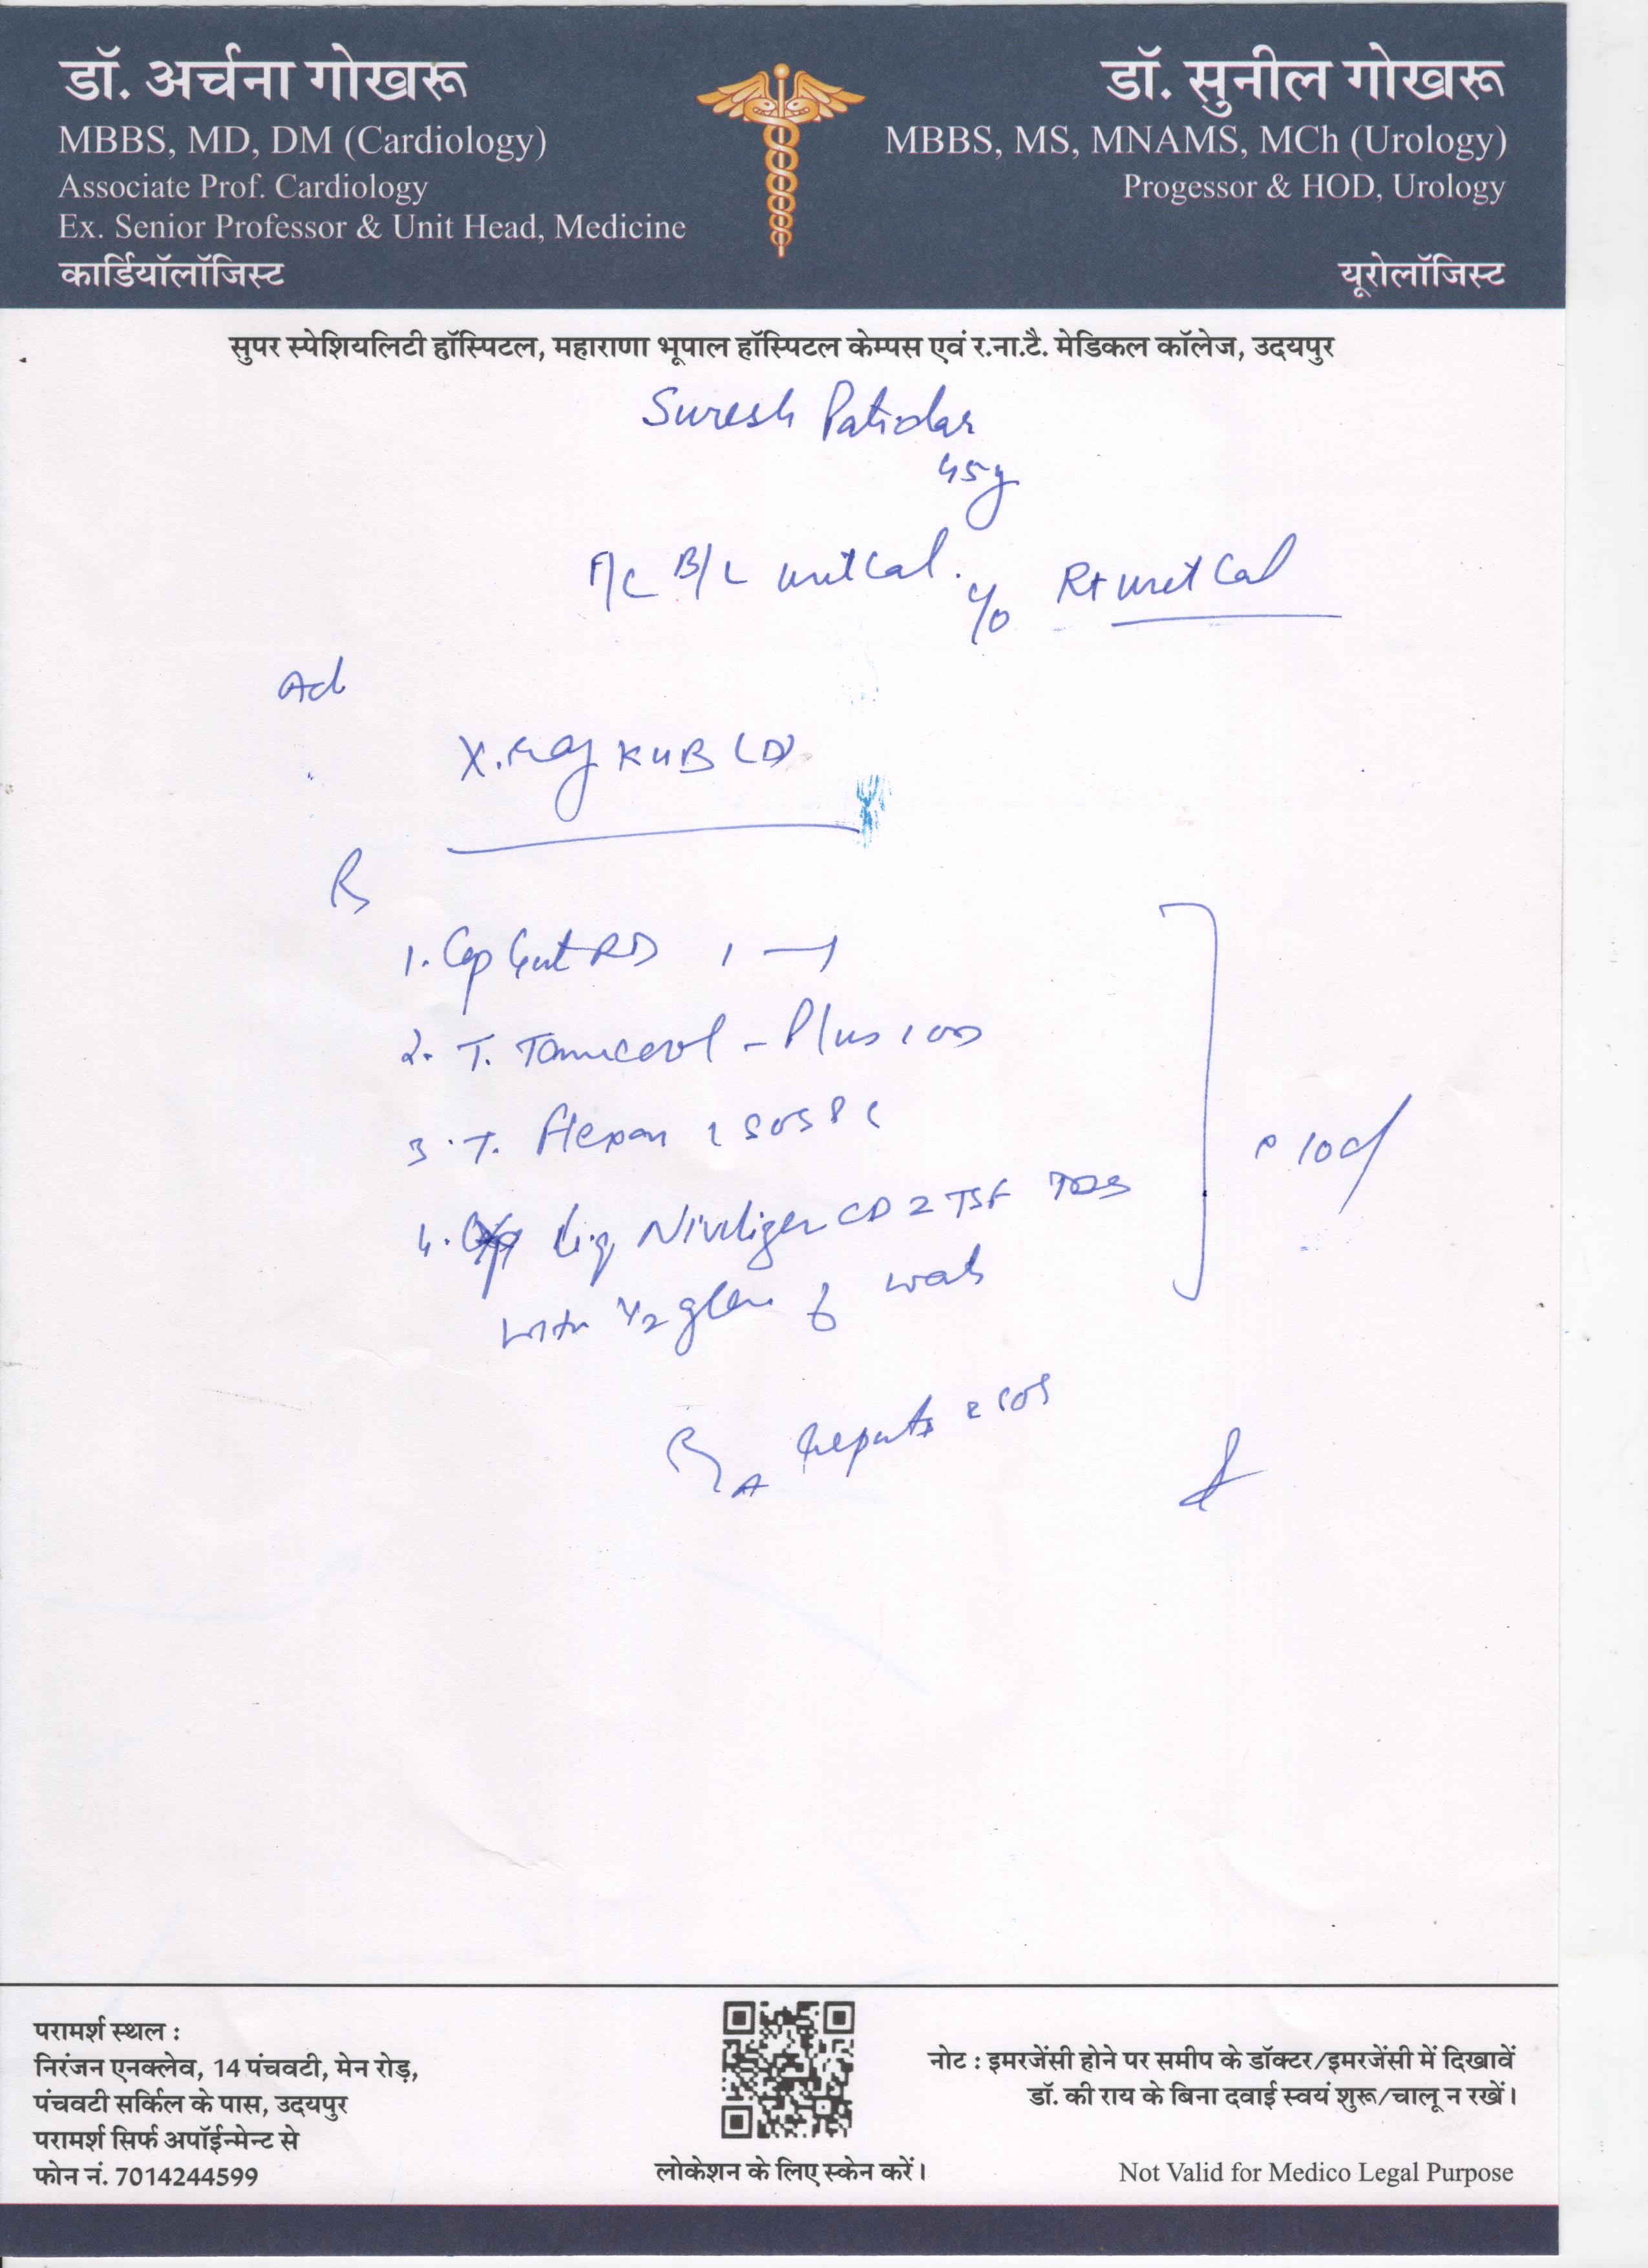 डॉ. अर्चना गोखरू
MBBS, MD, DM (Cardiology)
Associate Prof. Cardiology
Ex. Senior Professor & Unit Head, Medicine
कार्डियॉलॉजिस्ट
डॉ. सुनील गोखरू
MBBS, MS, MNAMS, MCh (Urology)
Progessor & HOD, Urology
यूरोलॉजिस्ट
सुपर स्पेशियलिटी हॉस्पिटल, महाराणा भूपाल हॉस्पिटल केम्पस एवं र.ना.टै. मेडिकल कॉलेज, उदयपुर
Suresh Patidar
45y
B/L Cal. Rt uret Cal
Ad
X.ray KUB
1. Cap RD
2. T. - Plus 1 OD
3. T. 1 SOS
4. Liq CD 2 TSF TDS
with 1/2 glass of
10d
Reports
परामर्श स्थल :
निरंजन एनक्लेव, 14 पंचवटी, मेन रोड़,
पंचवटी सर्किल के पास, उदयपुर
परामर्श सिर्फ अपॉईन्मेन्ट से
फोन नं. 7014244599
लोकेशन के लिए स्केन करें।
नोट : इमरजेंसी होने पर समीप के डॉक्टर/इमरजेंसी में दिखावें
डॉ. की राय के बिना दवाई स्वयं शुरू/चालू न रखें।
Not Valid for Medico Legal Purpose